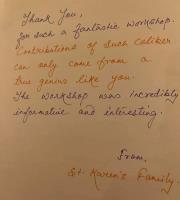 Thank You,
for such a fantastic workshop.
Contributions of such caliber
can only come from a
true genius like you.
The workshop was incredibly
informative and interesting.
From,
St. Karen's Family.